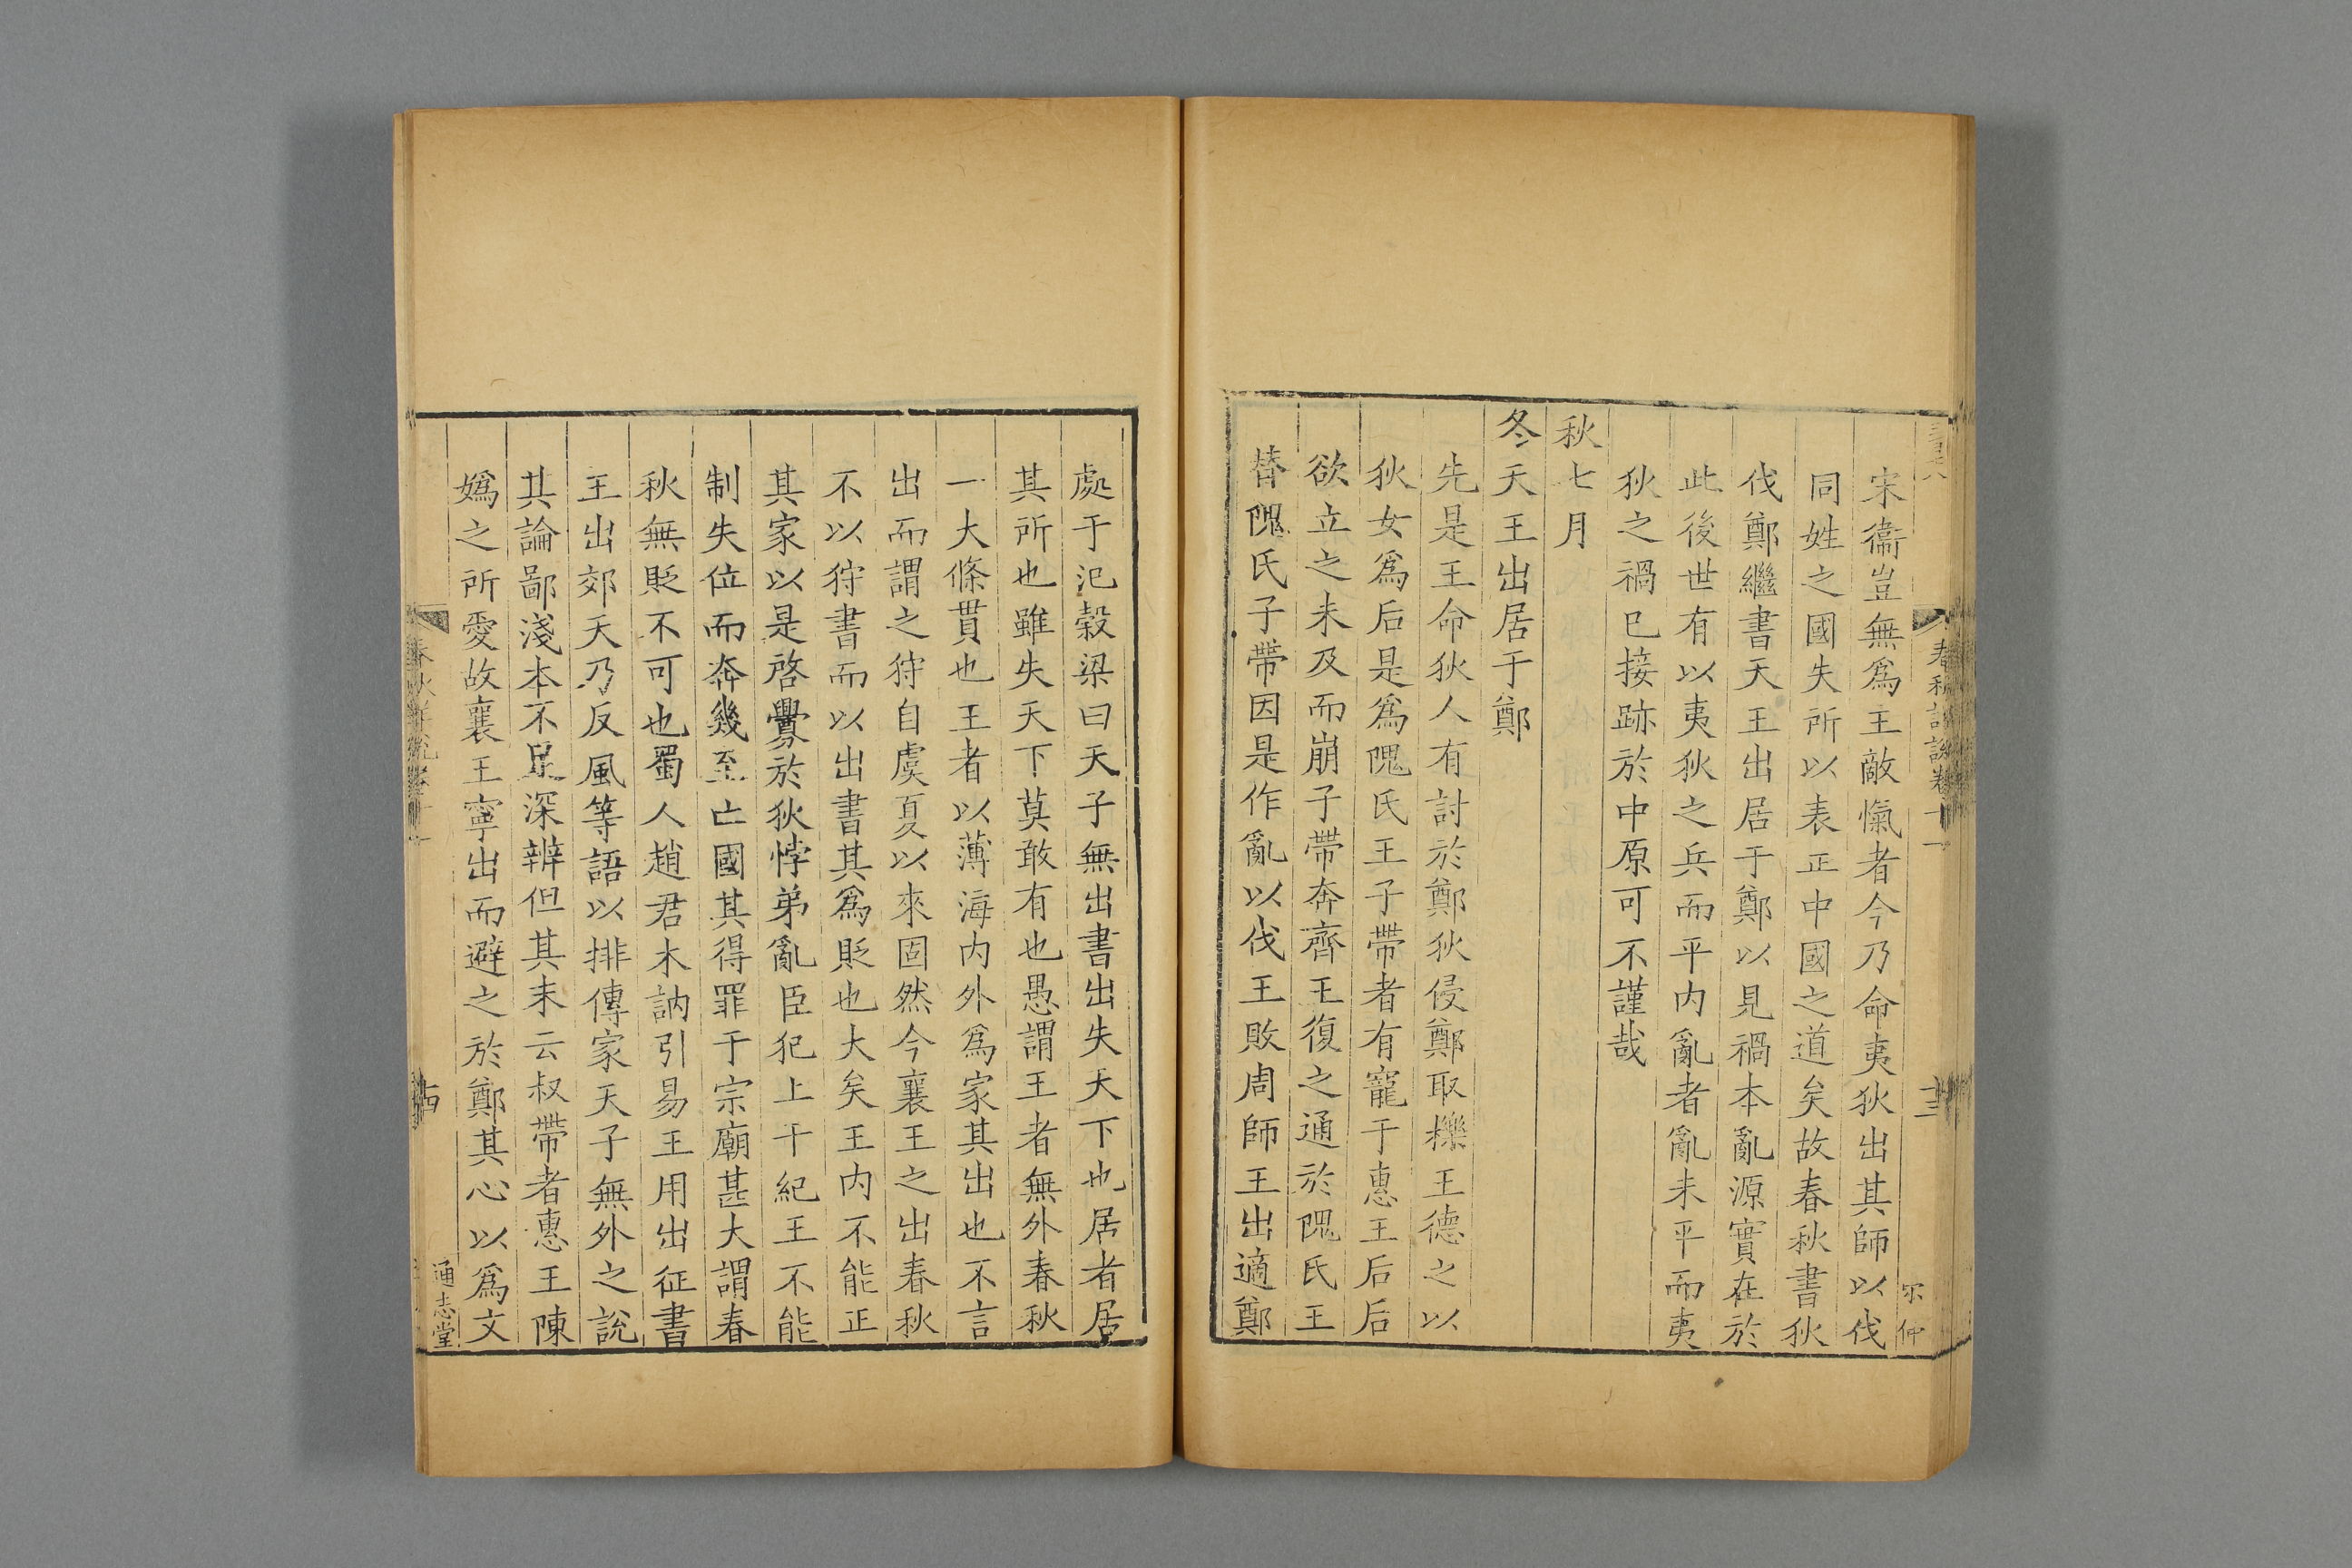 春秋詳說卷十一
十三
宋仲
宋衞豈無爲王敵愾者今乃命夷狄出其師以伐
同姓之國失所以表正中國之道矣故春秋書狄
伐鄭繼書天王出居于鄭以見禍本亂源實在於
此後世有以夷狄之兵而平内亂者亂未平而夷
狄之禍已接跡於中原可不謹哉
秋七月
冬天王出居于鄭
先是王命狄人有討於鄭狄侵鄭取櫟王德之以
狄女爲后是爲隗氏王子帶者有寵于惠王后后
欲立之未及而崩子帶奔齊王復之通於隗氏王
替隗氏子帶因是作亂以伐王敗周師王出適鄭
處于汜穀梁曰天子無出書出失天下也居者居
其所也雖失天下莫敢有也愚謂王者無外春秋
一大條貫也王者以薄海内外爲家其出也不言
出而謂之狩自虞夏以來固然今襄王之出春秋
不以狩書而以出書其爲貶也大矣王内不能正
其家以是啓釁於狄悖弟亂臣犯上干紀王不能
制失位而奔幾至亡國其得罪于宗廟甚大謂春
秋無貶不可也蜀人趙君木訥引易王用出征書
王出郊天乃反風等語以排傳家天子無外之說
其論鄙淺本不足深辨但其末云叔帶者惠王陳
嬀之所愛故襄王寧出而避之於鄭其心以爲文
春秋詳說卷十一
十四
通志堂